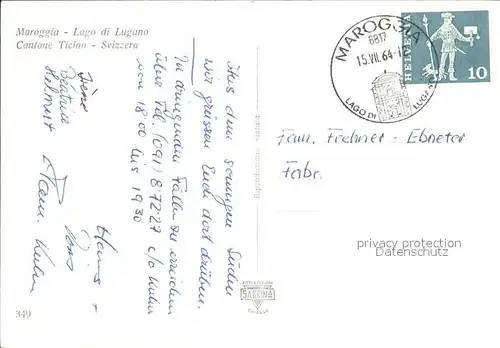 Maroggia - Lago di Lugano
Cantone Ticino - Svizzera
Aus dem sonnigen Süden
wir grüssen Euch dort drüben.
In dringenden Fällen zu erreichen
über Tel (091) 8.72.27 c/o Kuhn
von 18.00 bis 19.30
Irene
Beatrice
Helmut
Heinis +
Fam. Kuhn
349
SABRINA
MAROGGIA
6817
15.VII.64-12
LAGO DI LUGANO
HELVETIA
10
Fam. Fechner - Ebneter
Fabr.
privacy protection
Datenschutz